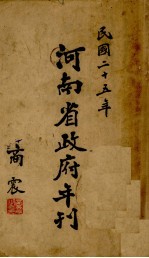 民國二十五年
河南省政府年刊
商震